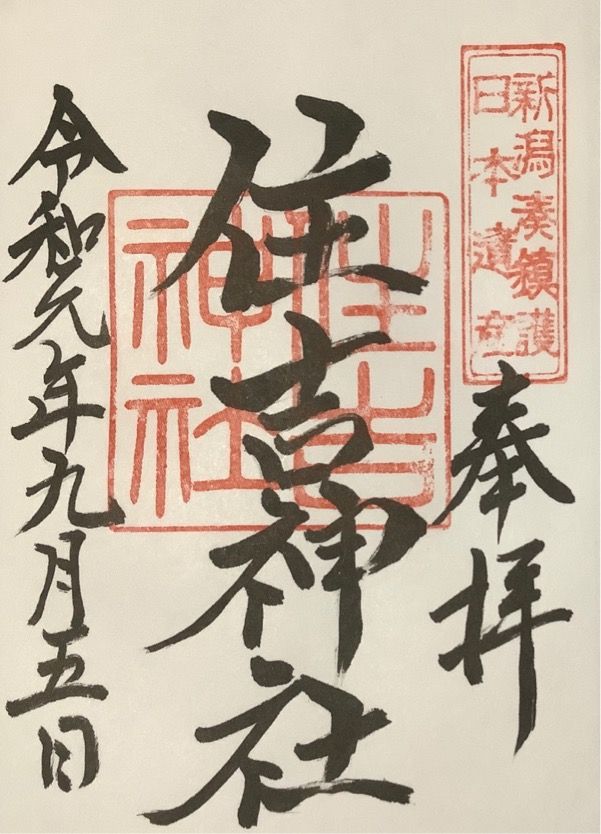 新潟湊鎮護
日本遺産
奉拝
住吉神社
住吉
神社
令和元年九月五日